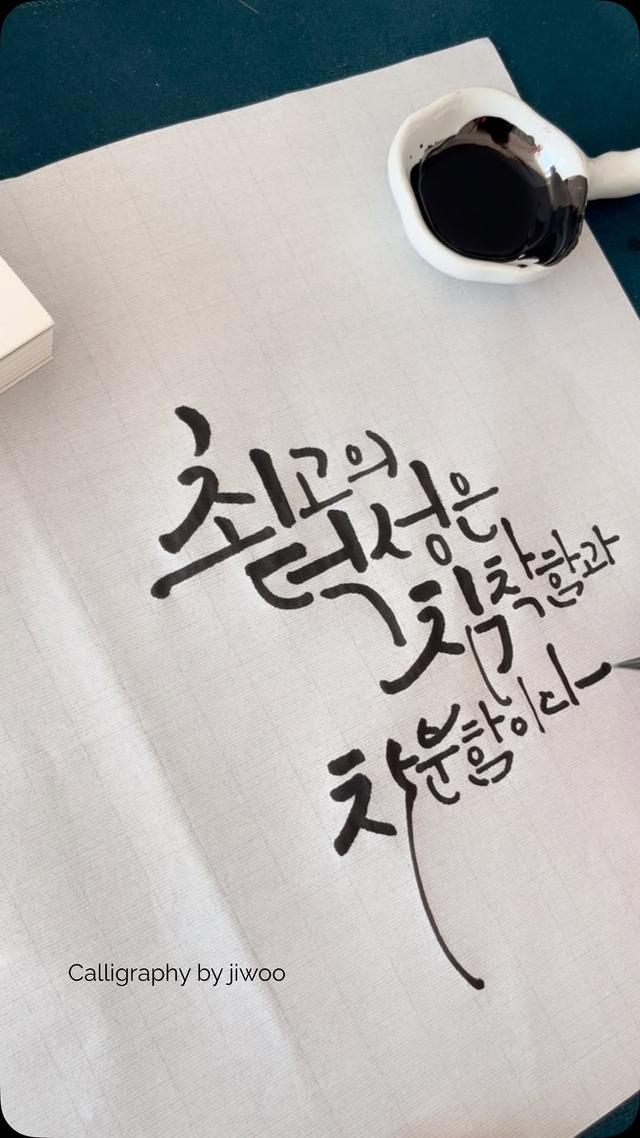 최고의
덕성은
침착함과
차분함이다
Calligraphy by jiwoo